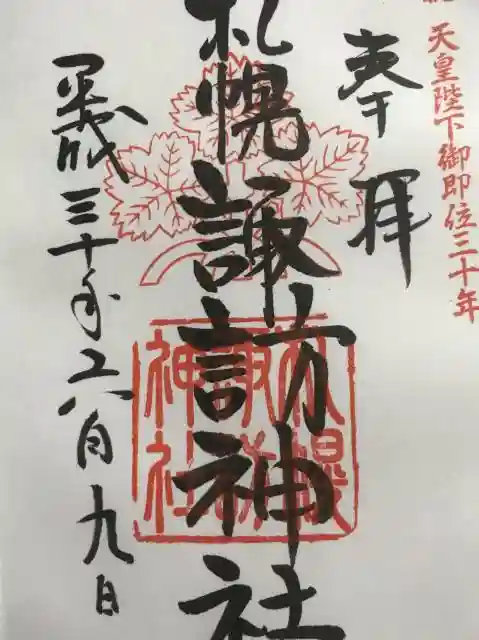 天皇陛下御即位三十年
奉拝
札幌諏訪神社
平成三十年六月九日
札幌
諏訪
神社